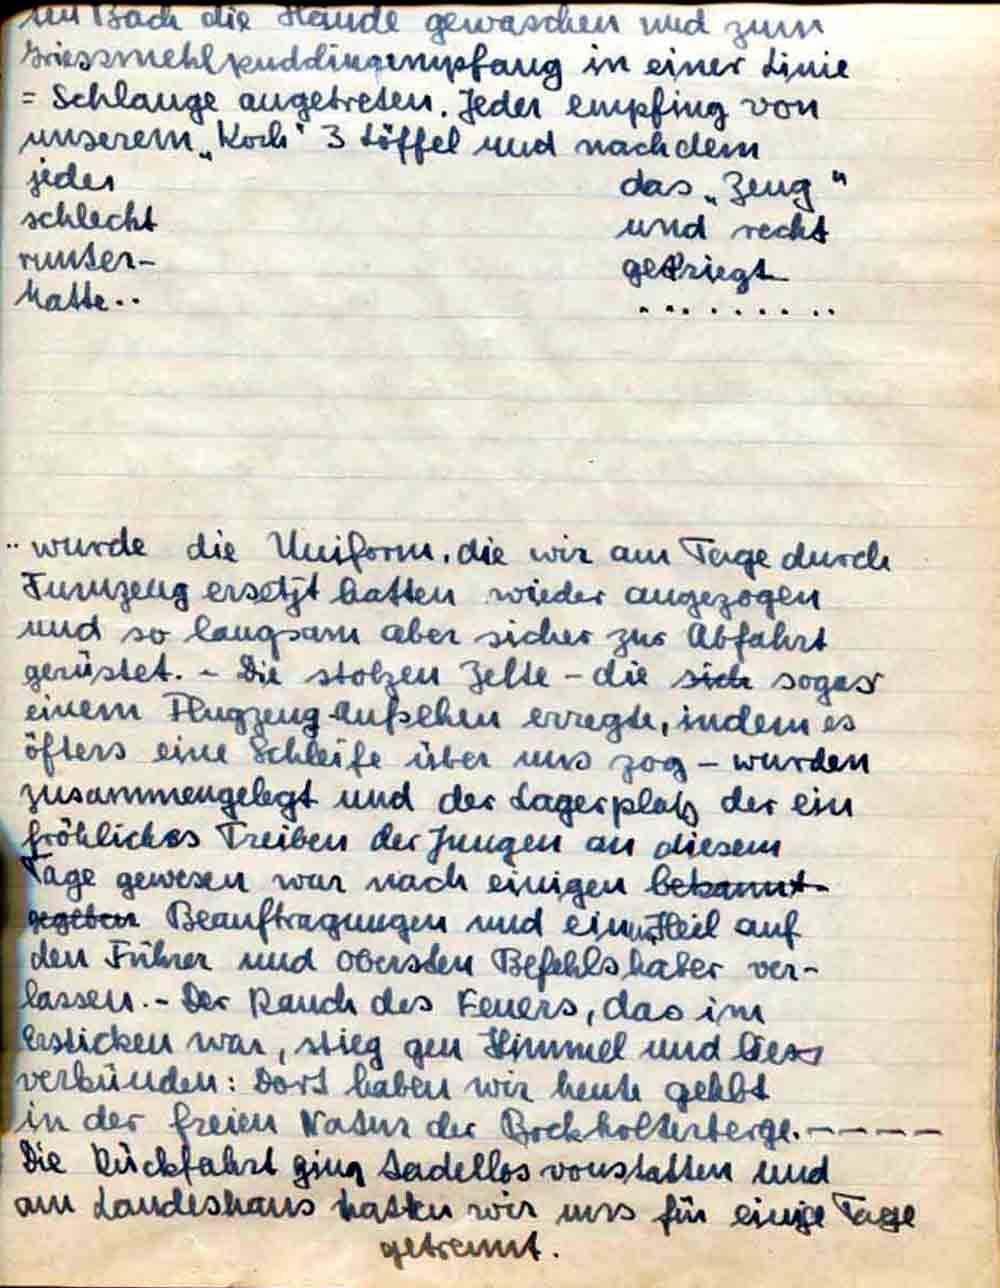 im Bach die Hände gewaschen und zum
Griessmehlpuddingempfang in einer Linie
= Schlange angetreten. Jeder empfing von
unserem „Koch“ 3 Löffel und nachdem
jeder das „Zeug“
schlecht und recht
runter- gekriegt
hatte.. . . . . . . . .
.. wurde die Uniform, die wir am Tage durch
Turnzeug ersetzt hatten wieder angezogen
und so langsam aber sicher zur Abfahrt
gerüstet. - Die stolzen Zelte - die sich sogar
einem Flugzeug Aufsehen erregte, indem es
öfters eine Schleife über uns zog - wurden
zusammengelegt und der Lagerplatz der ein
fröhliches Treiben der Jungen an diesem
Tage gewesen war nach einigen bekannt-
gegeben Beauftragungen und einem Heil auf
den Führer und Obersten Befehlshaber ver-
lassen. - Der Rauch des Feuers, das im
Ersticken war, stieg gen Himmel und liess
verkünden: Dort haben wir heute gelebt
in der freien Natur der Bockholterberge. - - - - -
Die Rückfahrt ging tadellos vonstatten und
am Landeshaus hatten wir uns für einige Tage
getrennt.